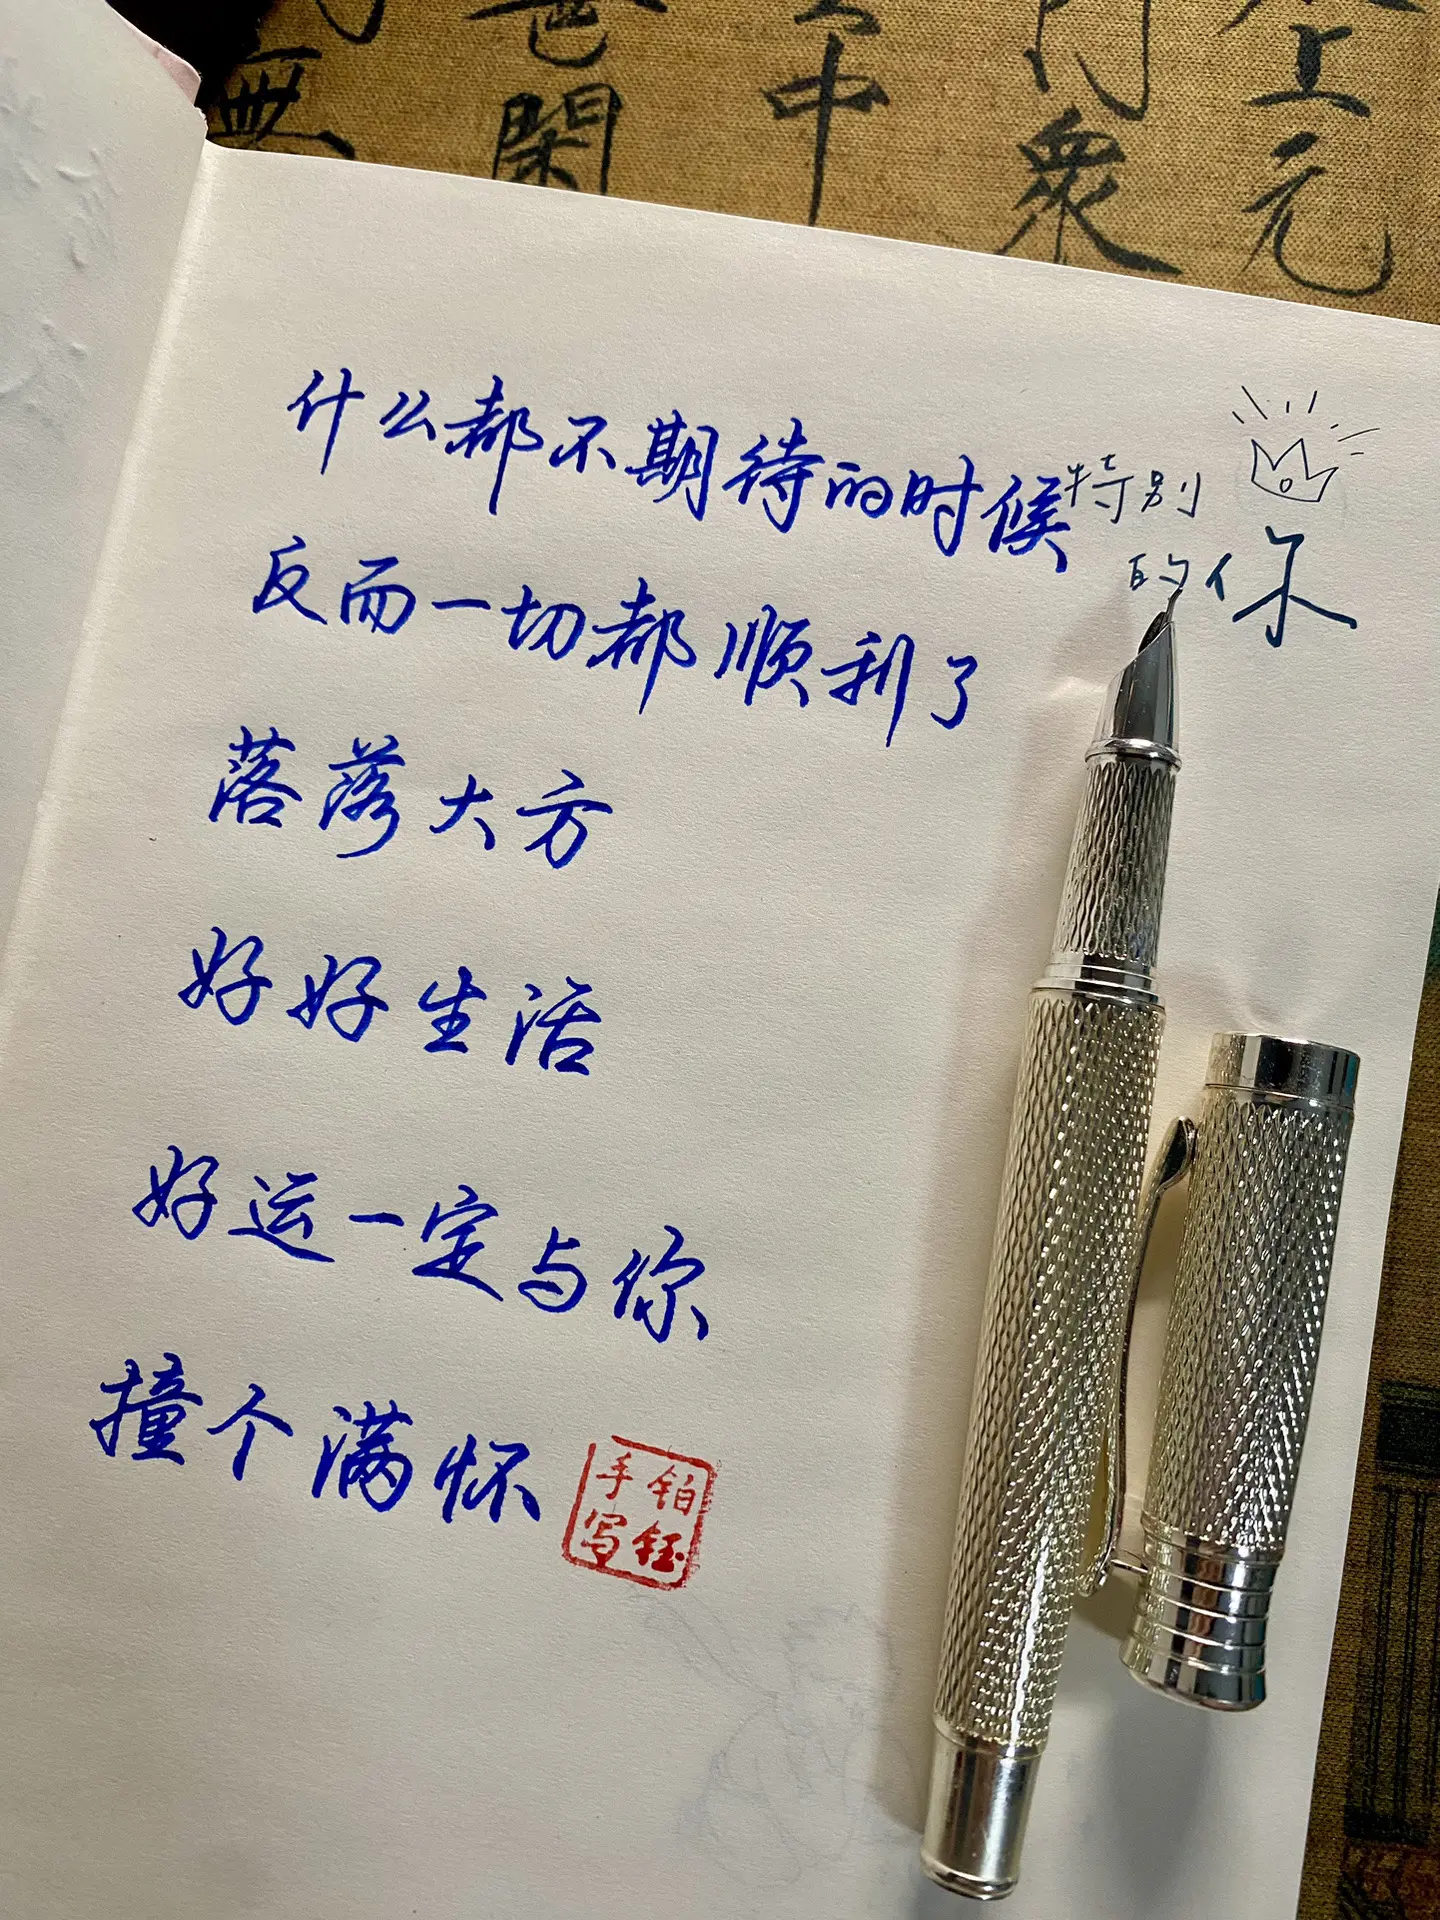 什么都不期待的时候
特别
的你
反而一切都顺利了
落落大方
好好生活
好运一定与你
撞个满怀
铂钰
手写
中
衆
元